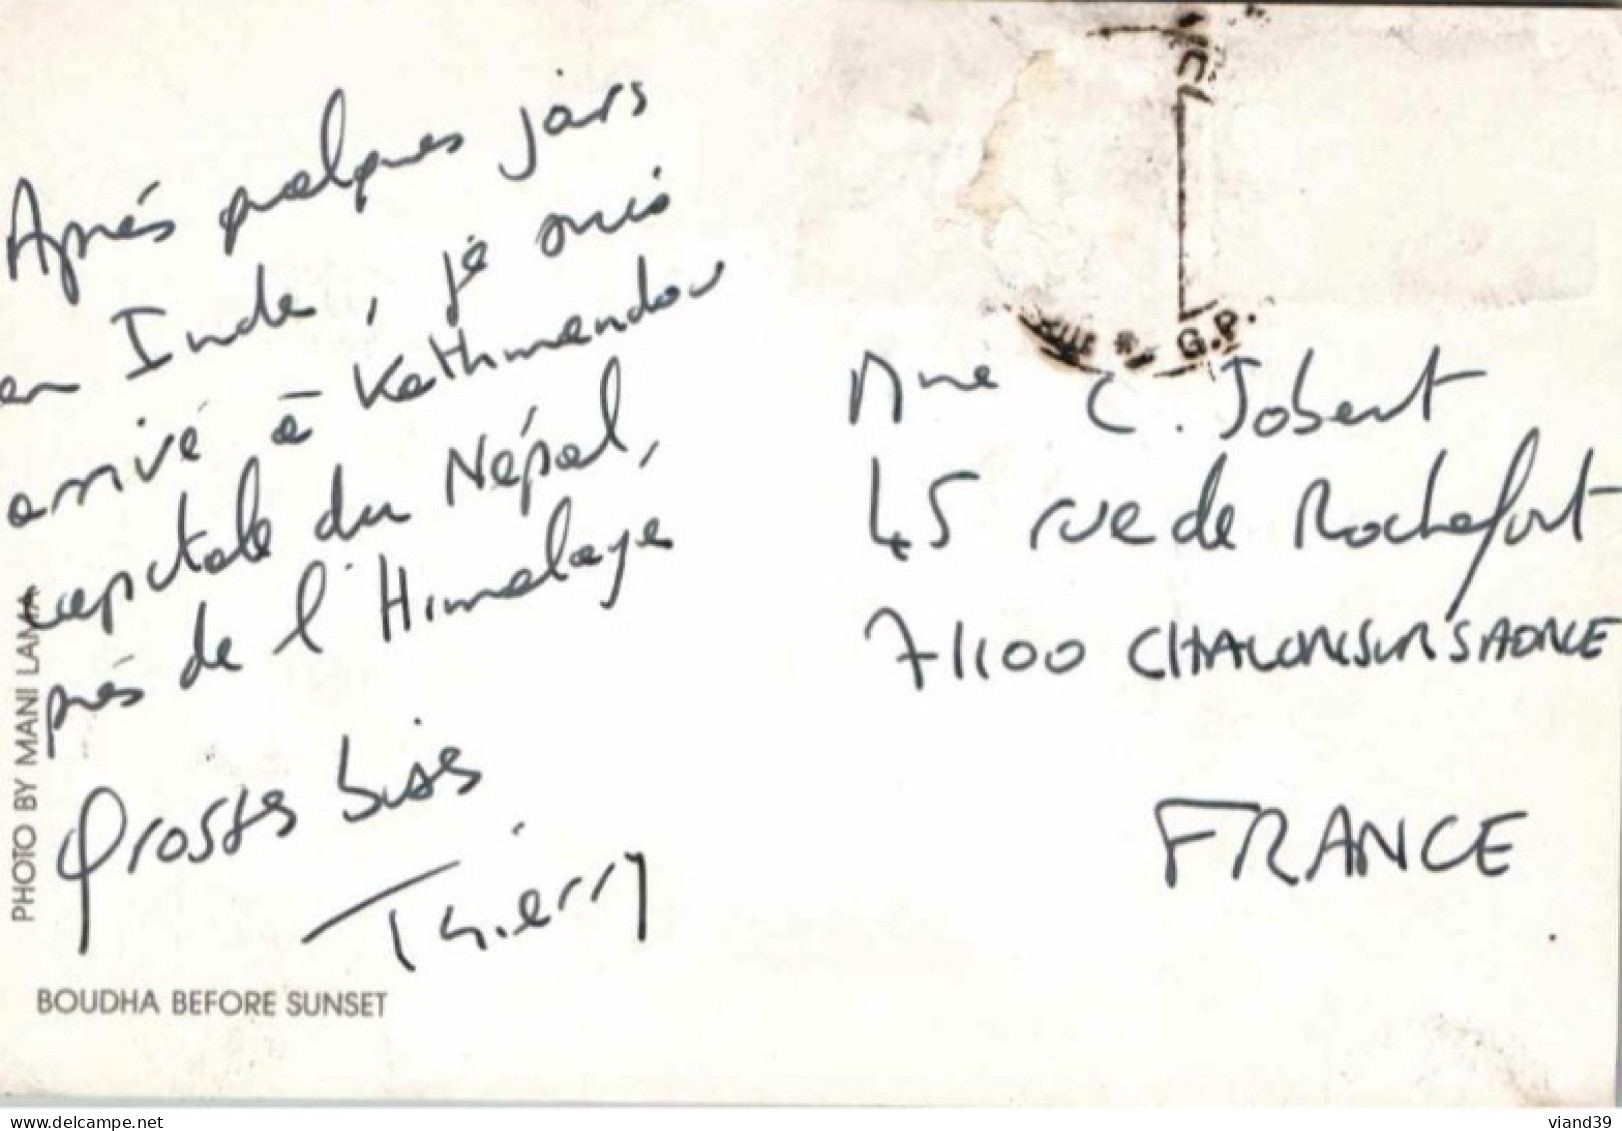 Après quelques jours
en Inde, je suis
arrivé à Kathmandou
capitale du Népal,
près de l'Himalaya
Grosses bises
Thierry
PHOTO BY MANI LAMA
BOUDHA BEFORE SUNSET
G.P.
Mme C. Jobert
45 rue de Rochefort
71100 CHALON SUR SAONE
FRANCE
viand39